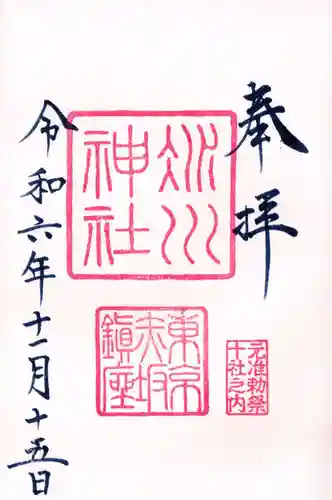 奉拝
氷川
神社
東京
赤坂
鎮座
元准勅祭
十社之内
令和六年十一月十五日